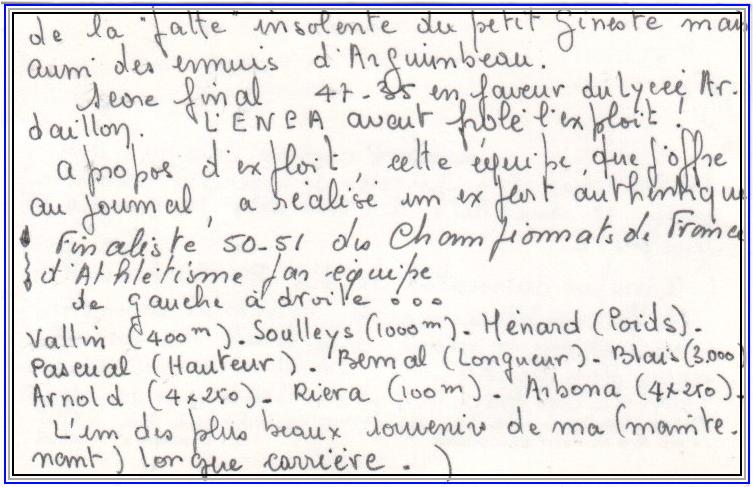 de la "fatte" insolente du petit Gineste mais
aussi des ennuis d'Arguimbeau.
Score final 47-35 en faveur du lycée Ar.
daillon. L'ENPA avait frôlé l'exploit !
A propos d'exploit, cette équipe que j'offre
au journal, a réalisé un exploit authentique
Finaliste 50-51 des Championnats de France
d'Athlétisme par équipe
de gauche à droite ...
Vallin (400m). Soulleys (1000m). Ménard (Poids).
Pascual (Hauteur). Bernal (Longueur). Blais (3.000)
Arnold (4x250). Riera (100m). Arbona (4x250).
L'un des plus beaux souvenirs de ma (mainte.
nant) longue carrière. )